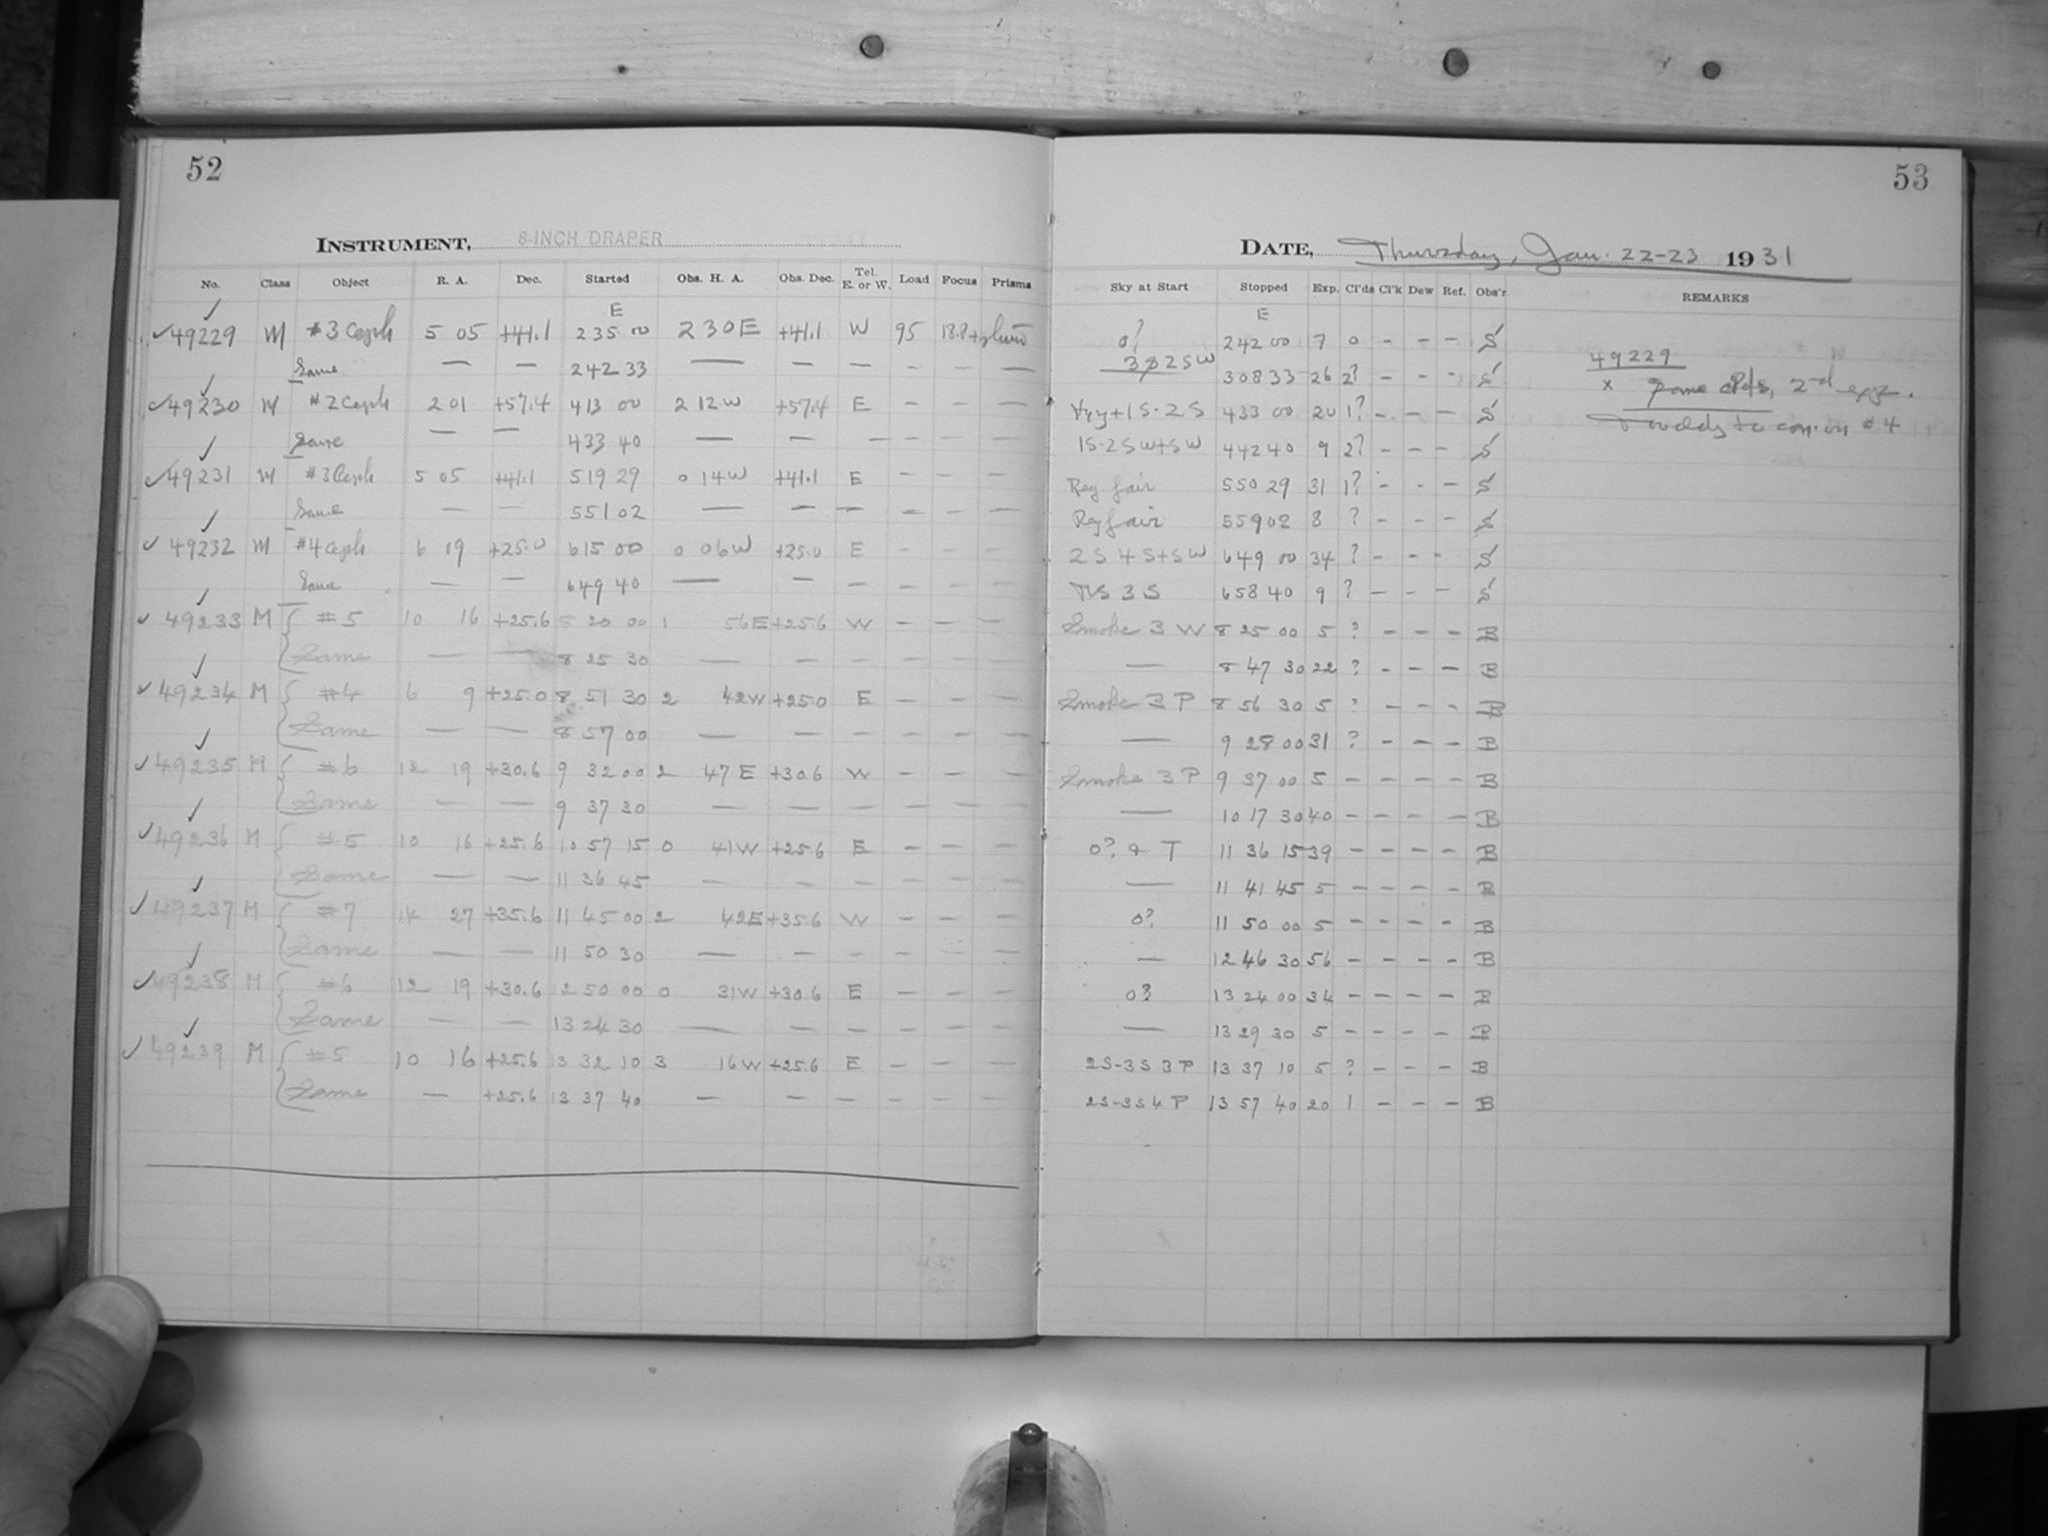 52
INSTRUMENT, 8-INCH DRAPER
No. Class Object R. A. Dec. Started Obs. H. A. Obs. Dec. Tel. E. or W. Load Focus Prisms
E
49229 M #3 Ceph 5 05 +41.1 2 35 00 2 30 E +41.1 W 95
Same — — 2 42 33 — — — — — —
49230 M #2 Ceph 2 01 +57.4 4 13 00 2 12 W +57.4 E — — —
Same — — 4 33 40 — — — — — —
49231 M #3 Ceph 5 05 +41.1 5 19 29 0 14 W +41.1 E — — —
Same — — 5 51 02 — — — — — —
49232 M #4 Ceph 6 09 +25.0 6 15 00 0 06 W +25.0 E — — —
Same — — 6 49 40 — — — — — —
49233 M #5 10 16 +25.6 8 20 00 1 56 E +25.6 W — — —
Same — — 8 25 30 — — — — — —
49234 M #4 6 9 +25.0 8 51 30 2 42 W +25.0 E — — —
Same — — 8 57 00 — — — — — —
49235 M #6 12 19 +30.6 9 32 00 2 47 E +30.6 W — — —
Same — — 9 37 30 — — — — — —
49236 M #5 10 16 +25.6 10 57 15 0 41 W +25.6 E — — —
Same — — 11 36 45 — — — — — —
49237 M #7 14 27 +35.6 11 45 00 2 42 E +35.6 W — — —
Same — — 11 50 30 — — — — — —
49238 M #6 12 19 +30.6 12 50 00 0 31 W +30.6 E — — —
Same — — 13 24 30 — — — — — —
49239 M #5 10 16 +25.6 13 32 10 3 16 W +25.6 E — — —
Same — +25.6 13 37 40 — — — — — —
53
DATE, Thursday, Jan. 22-23 1931
Sky at Start Stopped Exp. Cl'ds Cl'k Dew Ref. Obs'r REMARKS
E
0? 2 42 00 7 0 — — — S
2 S W 3 08 33 26 2? — — — S
+1 S-2 S 4 33 00 20 1? — — — S
1S-2SW+SW 4 42 40 9 2? — — — S
Reg fair 5 50 29 31 1? — — — S
Reg fair 5 59 02 8 ? — — — S
2 S 4 S+SW 6 49 00 34 ? — — — S
3 S 6 58 40 9 ? — — — S
Smoke 3 W 8 25 00 5 ? — — — B
— 8 47 30 22 ? — — — B
Smoke 3 P 8 56 30 5 ? — — — B
— 9 28 00 31 ? — — — B
Smoke 3 P 9 37 00 5 — — — — B
— 10 17 30 40 — — — — B
0? & T 11 36 15 39 — — — — B
— 11 41 45 5 — — — — B
0? 11 50 00 5 — — — — B
— 12 46 30 56 — — — — B
0? 13 24 00 34 — — — — B
— 13 29 30 5 — — — — B
2S-3S 3 P 13 37 10 5 ? — — — B
2S-3S 4 P 13 57 40 20 1 — — — B
49229
x some clds, 2nd exp.
to on #4